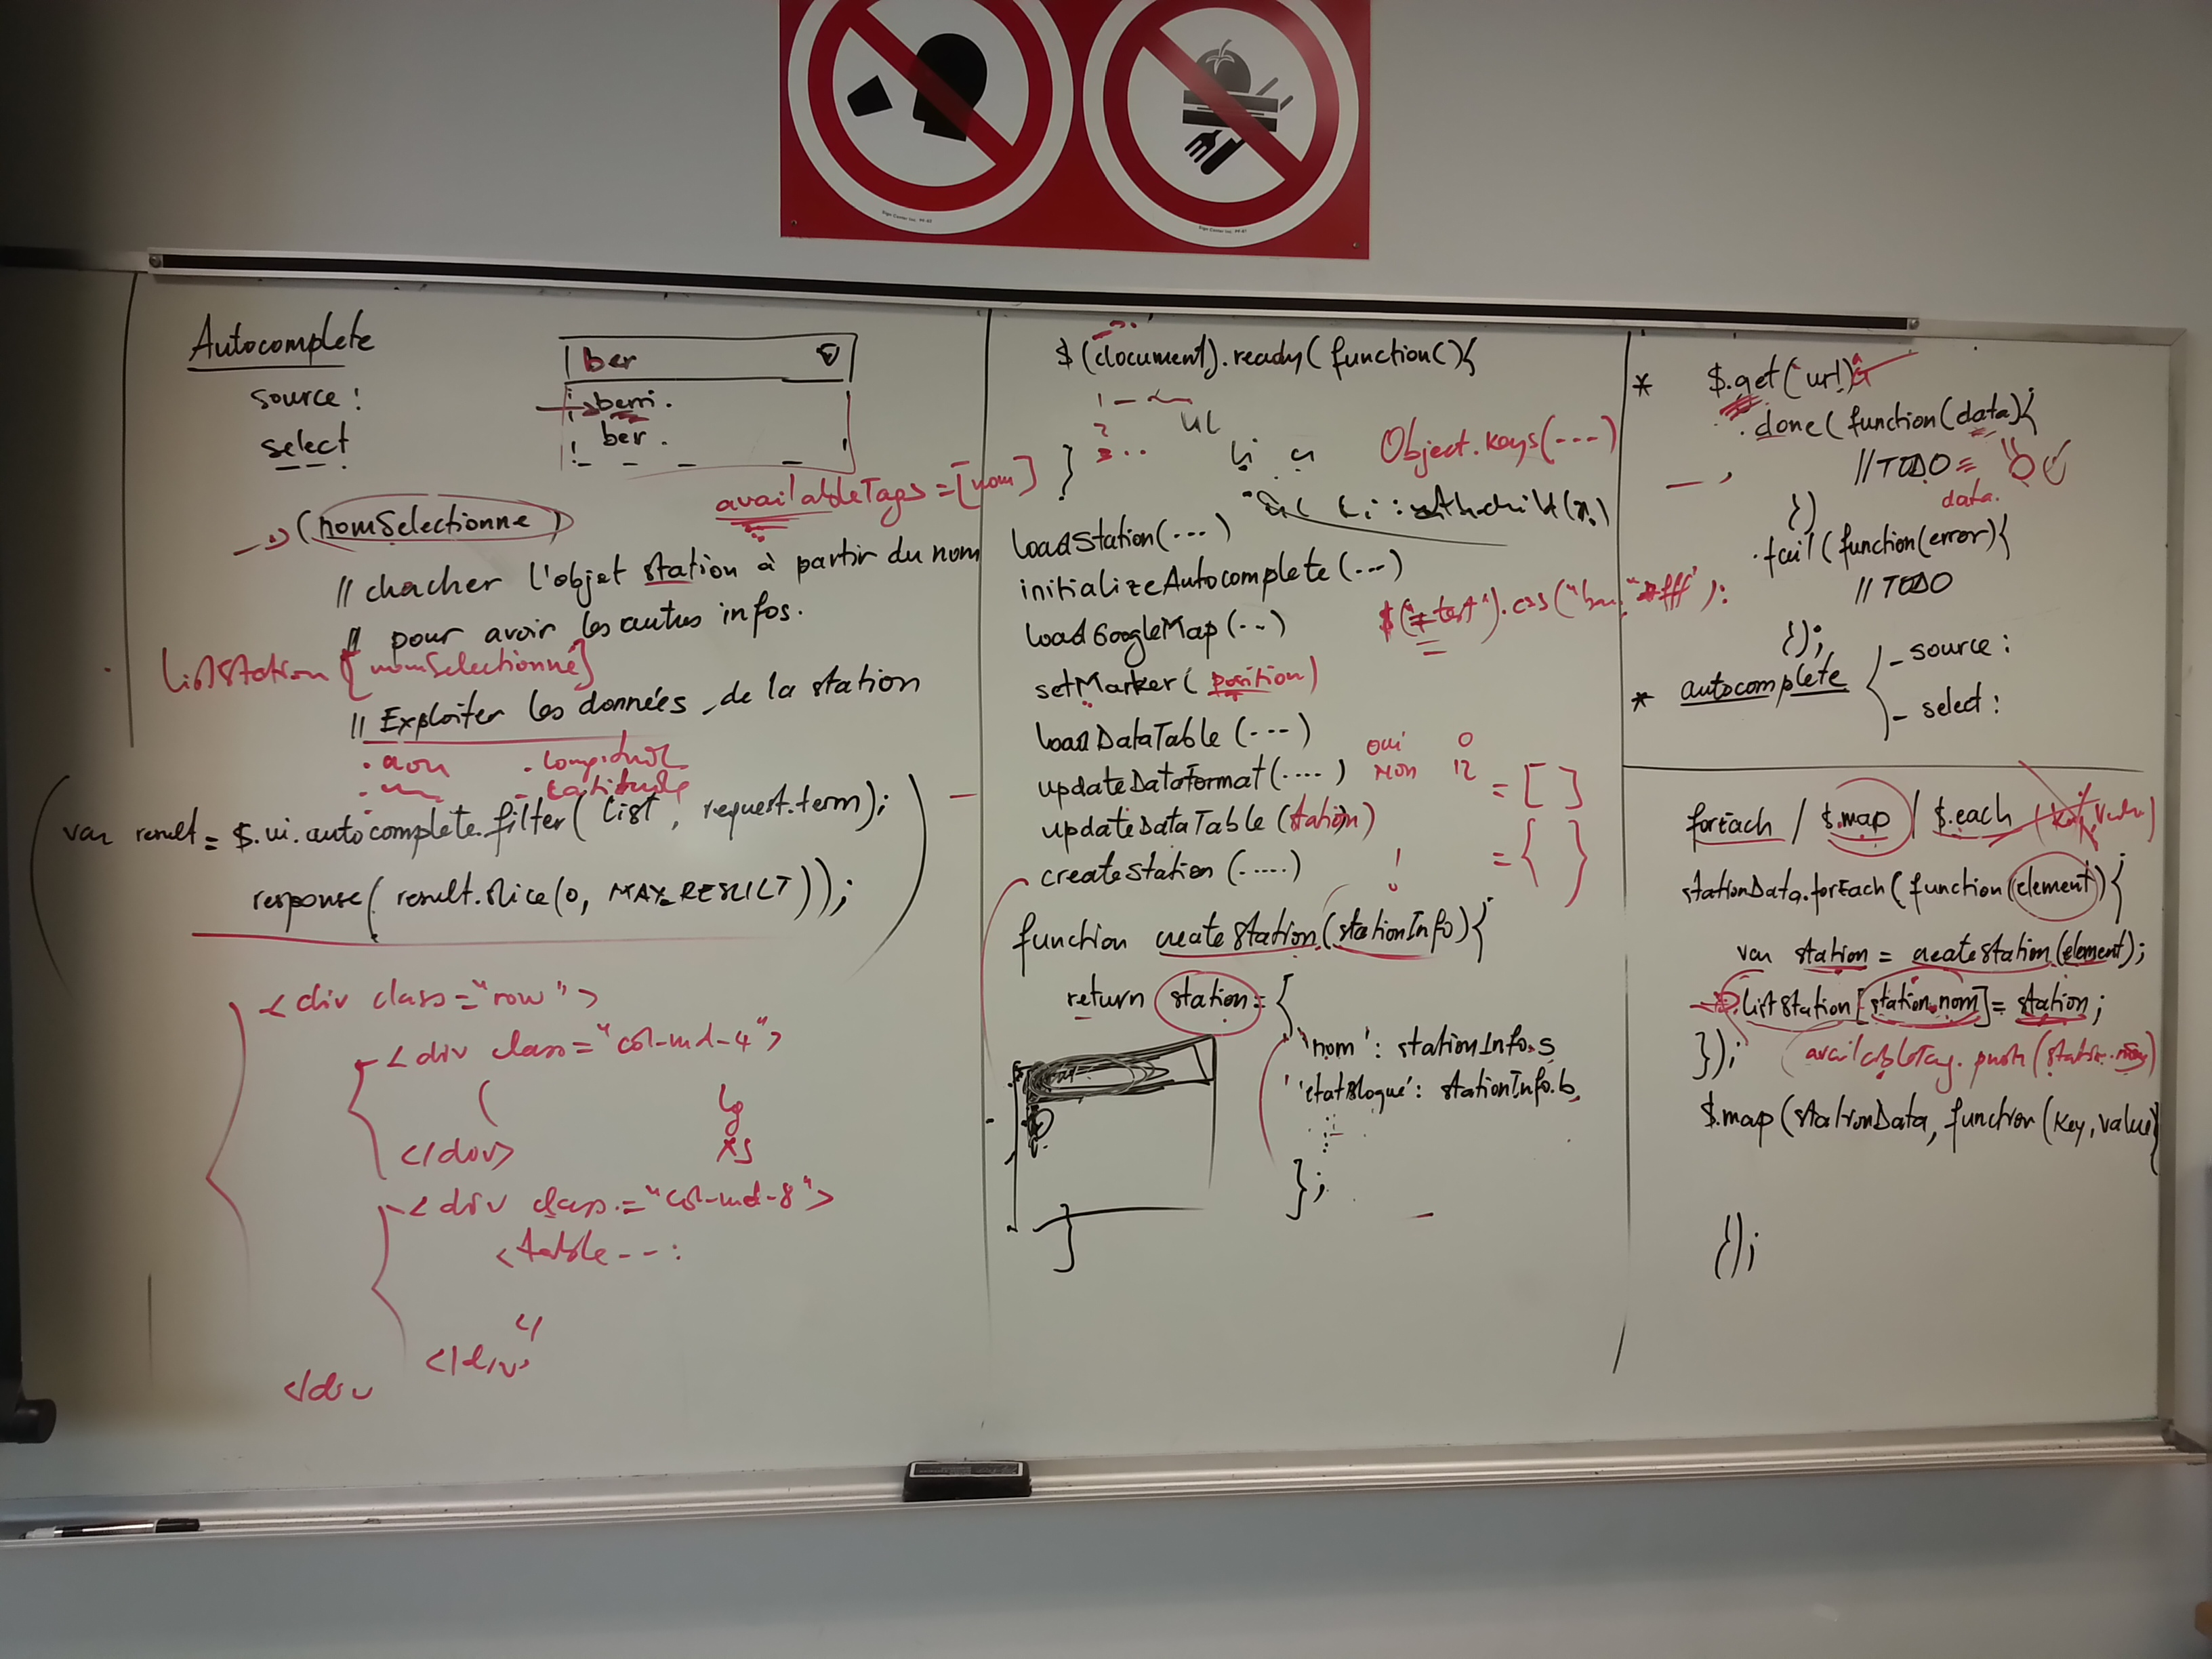 Autocomplete
source :
select
ber
berri.
ber.
availableTags = [nom]
→ (nomSelectionne)
// chacher l'objet station à partir du nom
// pour avoir les autres infos.
listStation [nomSelectionné]
// Exploiter les données de la station
. nom
. longitude
- latitude
var result = $.ui.autocomplete.filter( list, request.term);
response( result.slice(0, MAX_RESULT));
<div class="row">
<div class="col-md-4">
lg
xs
</div>
<div class="col-md-8">
<table --:
</div>
</div
$(document).ready( function(){
1 -
2
3 ..
UL
li
Object.keys(---)
}
loadStation(...)
initializeAutocomplete (...)
$("#test").css(
loadGoogleMap (--)
setMarker( position)
loadDataTable (---)
oui 0
non 12
updateDataFormat(....)
= [ ]
updateDataTable (station)
= { }
createStation (.....)
!
function createStation(stationInfo){
return station = {
'nom' : stationInfo.s
'etatBloqué' : stationInfo.b
};
}
* $.get('url')
.done( function(data){
// TODO
data.
})
.fail( function(error){
// TODO
});
* autocomplete
- source :
- select :
forEach / $.map / $.each
stationData.forEach( function(element){
var station = createStation(element);
listStation[station.nom] = station ;
});
availableTag.push(station.nom)
$.map (stationData, function (key, value){
});